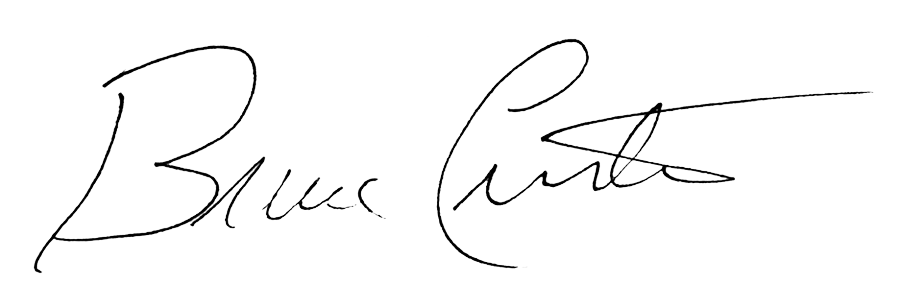 Bruce Curtis